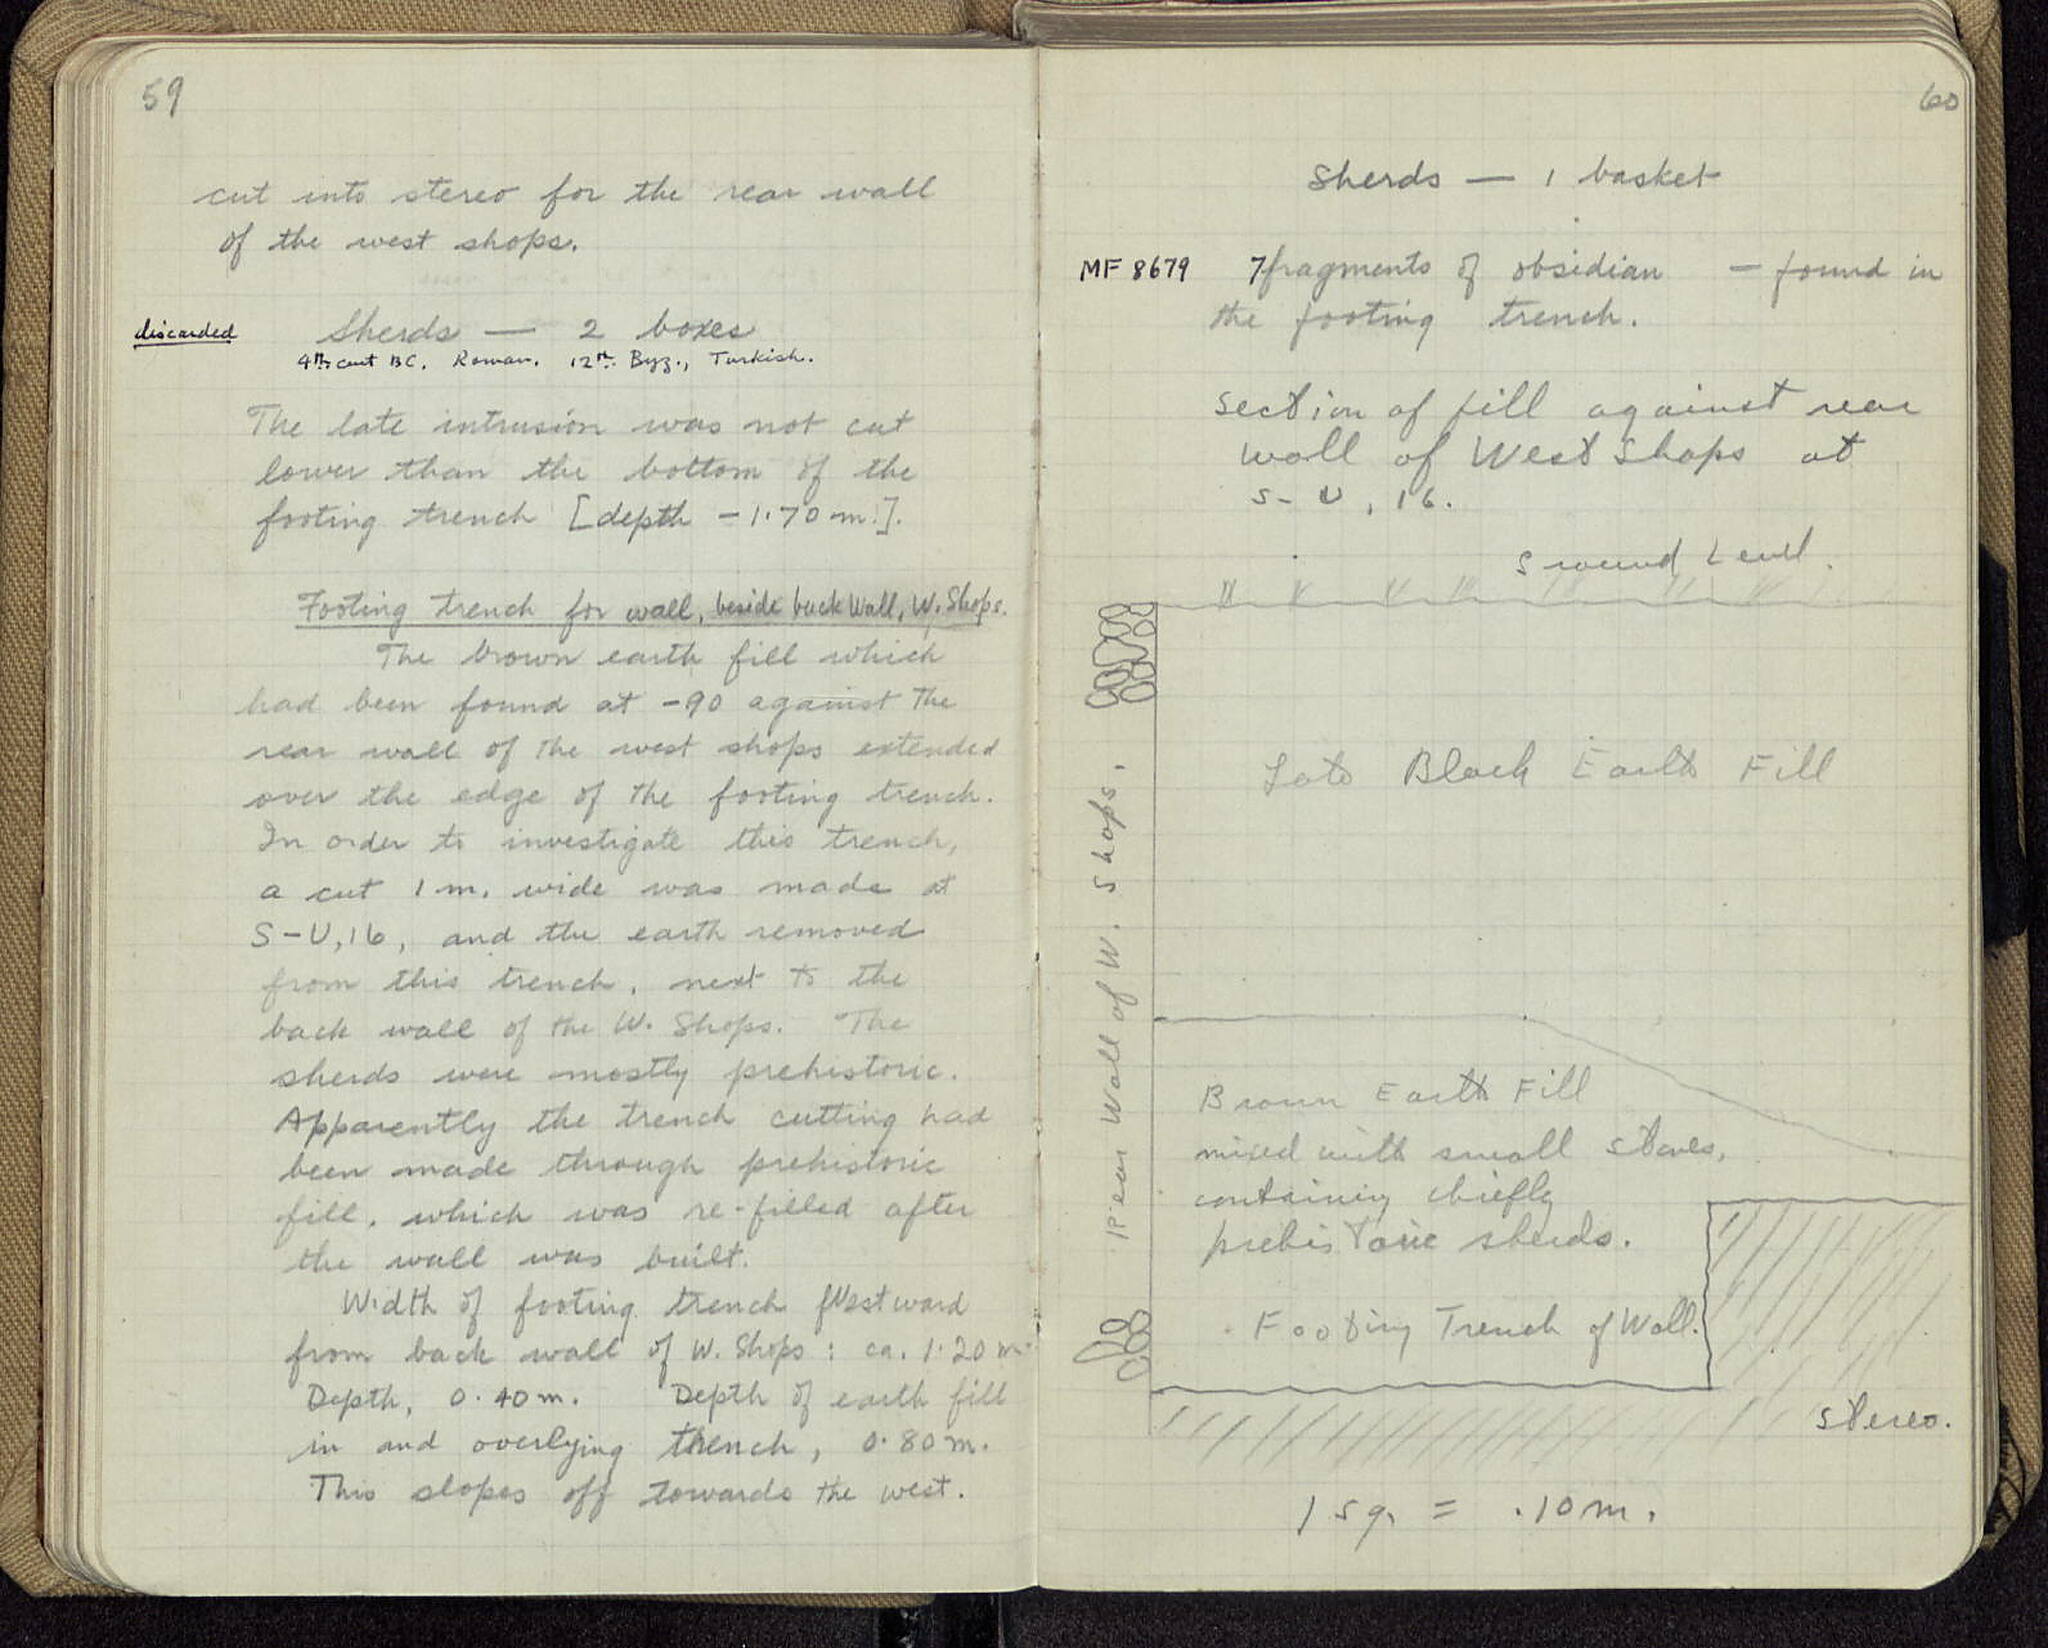 59
cut into stereo for the rear wall
of the west shops.
discarded Sherds — 2 boxes
4th cent BC. Roman. 12th Byz., Turkish.
The late intrusion was not cut
lower than the bottom of the
footing trench [depth -1.70 m.].
Footing trench for wall, beside back wall, W. Shops.
The brown earth fill which
had been found at -90 against the
rear wall of the west shops extended
over the edge of the footing trench.
In order to investigate this trench,
a cut 1 m. wide was made at
S-U,16, and the earth removed
from this trench, next to the
back wall of the W. Shops. The
sherds were mostly prehistoric.
Apparently the trench cutting had
been made through prehistoric
fill, which was re-filled after
the wall was built.
Width of footing trench westward
from back wall of W. Shops: ca. 1.20 m.
Depth, 0.40 m. Depth of earth fill
in and overlying trench, 0.80 m.
This slopes off towards the west.
60
Sherds — 1 basket
MF 8679 7 fragments of obsidian — found in
the footing trench.
Section of fill against rear
wall of West Shops at
S-U, 16.
Ground Level.
Late Black Earth Fill
Rear Wall of W. Shops.
Brown Earth Fill
mixed with small stones,
containing chiefly
prehistoric sherds.
Footing Trench of Wall.
stereo.
1 sq. = .10 m.